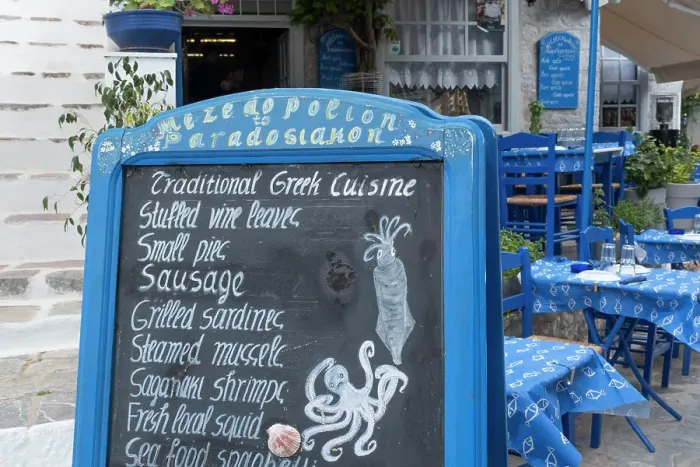 Mezedopolion
to
Paradosiakon
Traditional Greek Cuisine
Stuffed vine leaves
Small pies
Sausage
Grilled sardines
Steamed mussels
Saganaki shrimps
Fresh local squid
Sea food spaghetti